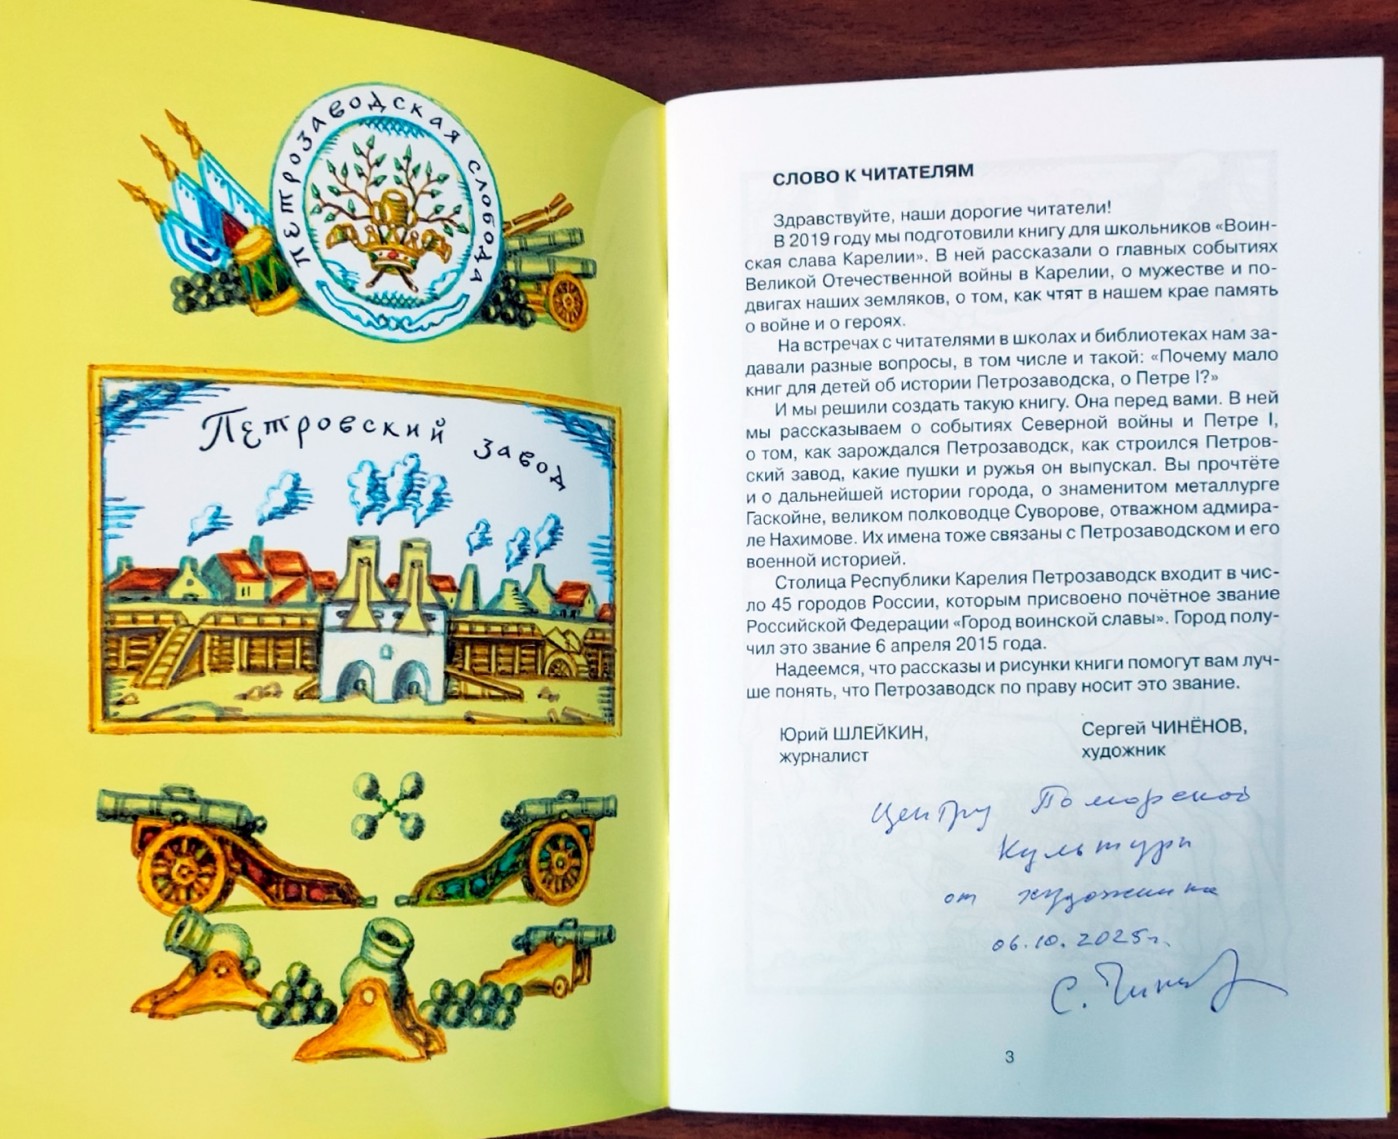 Петрозаводская слобода
Петровский завод
СЛОВО К ЧИТАТЕЛЯМ
Здравствуйте, наши дорогие читатели!
В 2019 году мы подготовили книгу для школьников «Воин-
ская слава Карелии». В ней рассказали о главных событиях
Великой Отечественной войны в Карелии, о мужестве и по-
двигах наших земляков, о том, как чтят в нашем крае память
о войне и о героях.
На встречах с читателями в школах и библиотеках нам за-
давали разные вопросы, в том числе и такой: «Почему мало
книг для детей об истории Петрозаводска, о Петре I?»
И мы решили создать такую книгу. Она перед вами. В ней
мы рассказываем о событиях Северной войны и Петре I,
о том, как зарождался Петрозаводск, как строился Петров-
ский завод, какие пушки и ружья он выпускал. Вы прочтёте
и о дальнейшей истории города, о знаменитом металлурге
Гаскойне, великом полководце Суворове, отважном адмира-
ле Нахимове. Их имена тоже связаны с Петрозаводском и его
военной историей.
Столица Республики Карелия Петрозаводск входит в чис-
ло 45 городов России, которым присвоено почётное звание
Российской Федерации «Город воинской славы». Город полу-
чил это звание 6 апреля 2015 года.
Надеемся, что рассказы и рисунки книги помогут вам луч-
ше понять, что Петрозаводск по праву носит это звание.
Юрий ШЛЕЙКИН,
журналист
Сергей ЧИНЁНОВ,
художник
Центру Поморской
Культуры
от художника
06.10.2025г.
С. Чинёнов
3